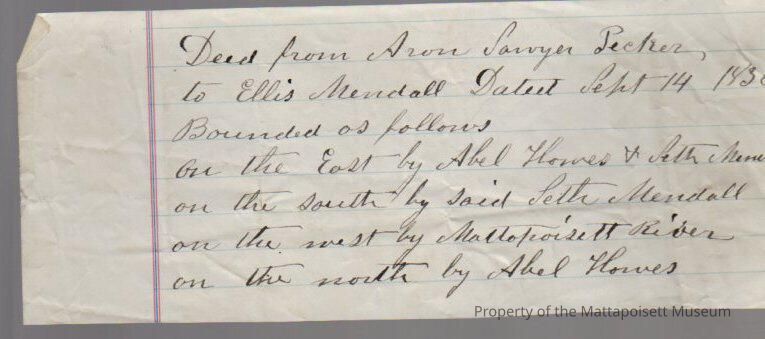 Deed from Aron Sawyer Pecker,
to Ellis Mendall Dated Sept 14 183
Bounded as follows
on the East by Abel Howes & Seth Men
on the south by said Seth Mendall
on the west by Mattapoisett River
on the north by Abel Howes
Property of the Mattapoisett Museum